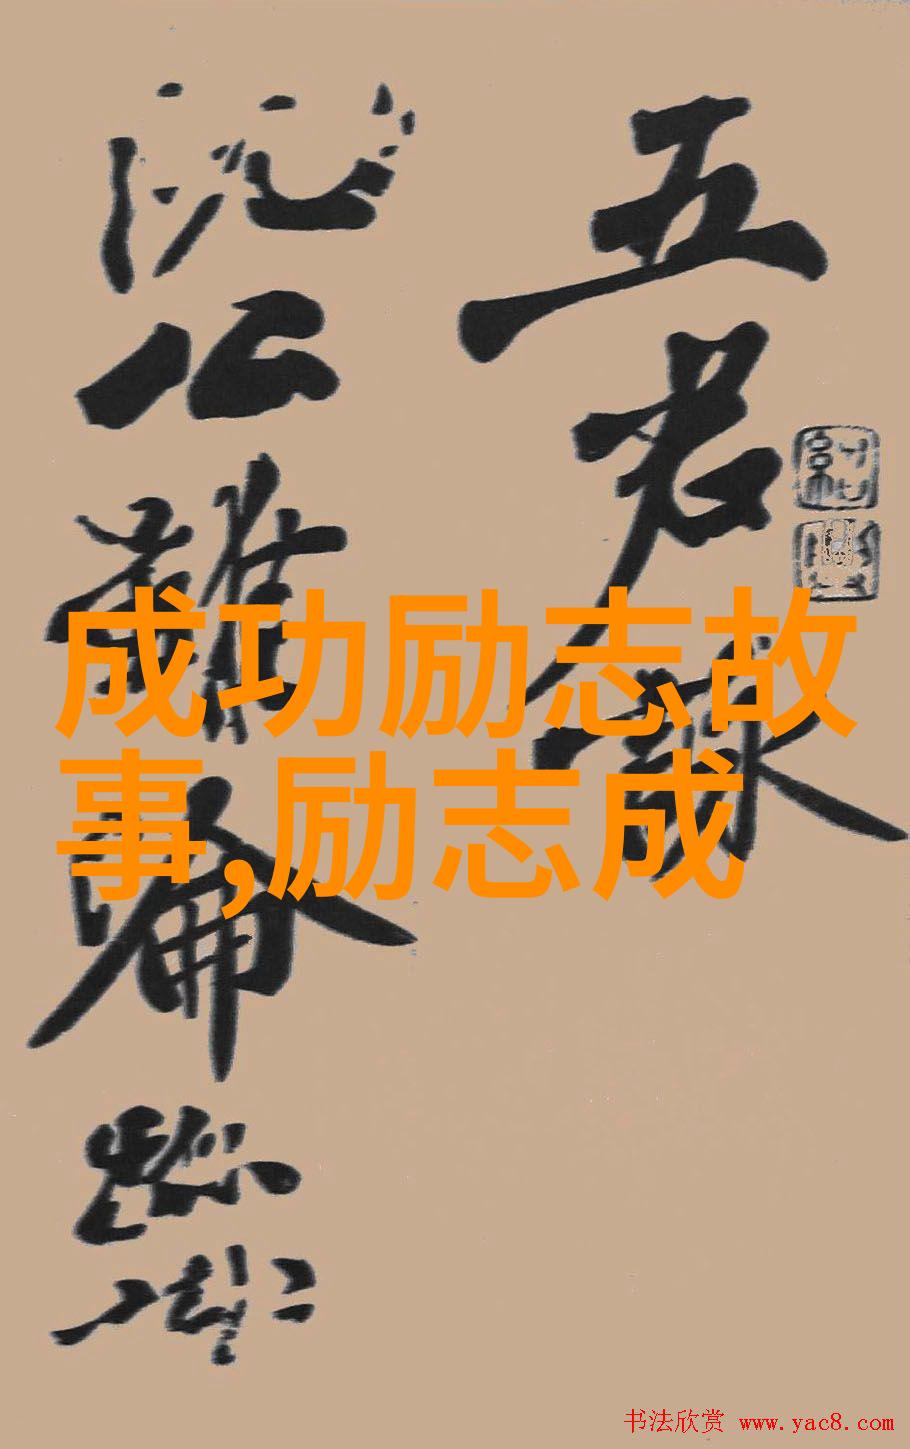 五君詠
阮公雖淪跡
成功励志故
事,励志成
书法欣赏 www.yac8.com